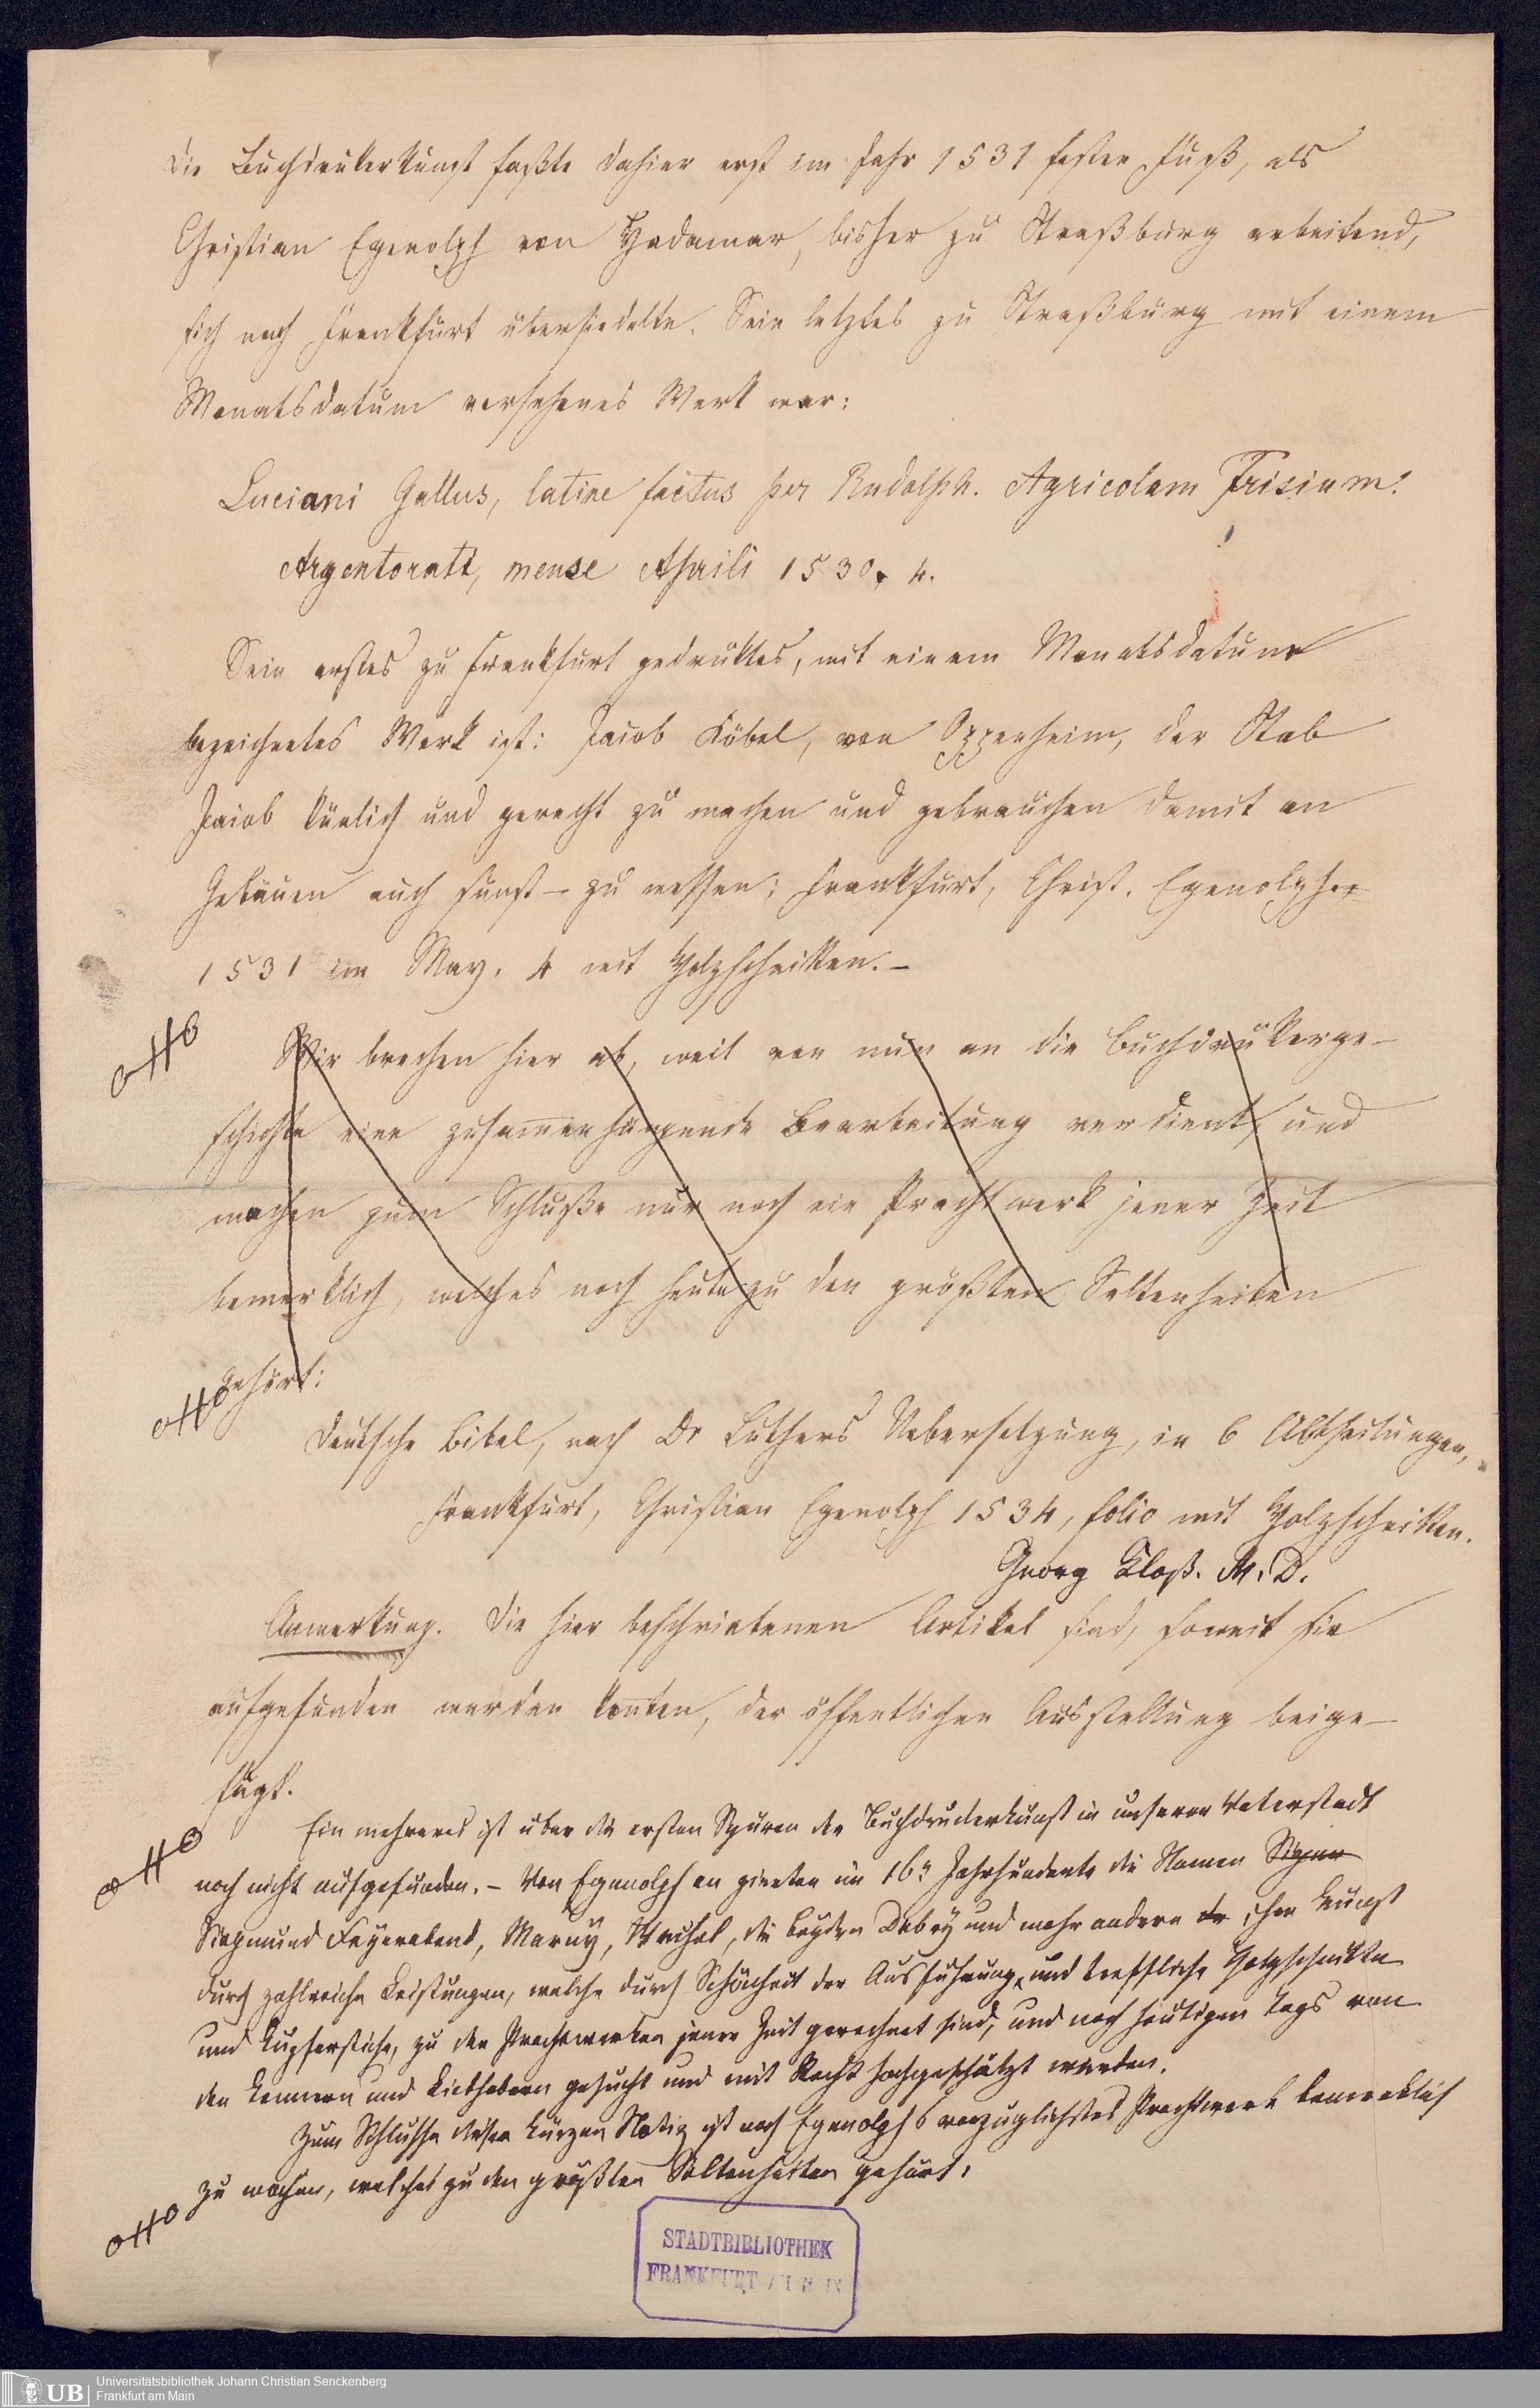 Die Buchdrukerkunst faßte dahier erst im Jahr 1531 festen Fuß, als
Christian Egenolph von Hadamar, bisher zu Straßburg arbeitend,
sich nach Frankfurt übersiedelte. Sein letztes zu Straßburg mit einem
Monatsdatum versehenes Werk war:
Luciani Gallus, latine factus per Rudolph. Agricolam Frisium.
Argentorati, mense Aprili 1530. 4.
Sein erstes zu Frankfurt gedruktes, mit einem Monatsdatum
bezeichnetes Werk ist: Jacob Köbel, von Oppenheim, der Stab
Jacob künlich und gerecht zu machen und gebrauchen damit an
Gebäuen auch sunst – zu messen; Frankfurt, Christ. Egenolpher
1531 im May. 4 mit Holzschnitten. –
Wir brechen hier ab, weil von nun an die Buchdrukerge-
schichte eine zusammenhängende Bearbeitung verdient, und
machen zum Schluße nur noch ein Prachtwerk jener Zeit
bemerklich, welches noch heute zu den größten Seltenheiten
gehört:
Deutsche Bibel, nach Dr Luthers Uebersetzung, in 6 Abtheilungen,
Frankfurt, Christian Egenolph 1534, folio mit Holzschnitten.
Georg Kloß. M. D.
Anmerkung. Die hier beschriebenen Artikel sind, soweit sie
aufgefunden werden konnten, der öffentlichen Ausstellung beige-
fügt.
Ein mehreres ist über die ersten Spuren der Buchdruckerkunst in unserer Vaterstadt
noch nicht aufgefunden. – Von Egenolph an zierten im 16n Jahrhunderte die Namen
Siegmund Feyerabend, Marny, Wechel, die beyden Debry und mehr andere ihre Kunst
durch zahlreiche Leistungen, welche durch Schönheit der Ausführung, und treffliche Holzschnitte
und Kupferstiche, zu den Prachtwerken jener Zeit gerechnet sind, und noch heutigen Tags von
den Kennern und Liebhabern gesucht und mit Recht hochgeschätzt werden.
Zum Schlusse dieser kurzen Notiz ist noch Egenolphs vorzüglichstes Prachtwerk bemerklich
zu machen, welches zu den größten Seltenheiten gehört:
STADTBIBLIOTHEK
FRANKFURT
UB
Universitätsbibliothek Johann Christian Senckenberg
Frankfurt am Main